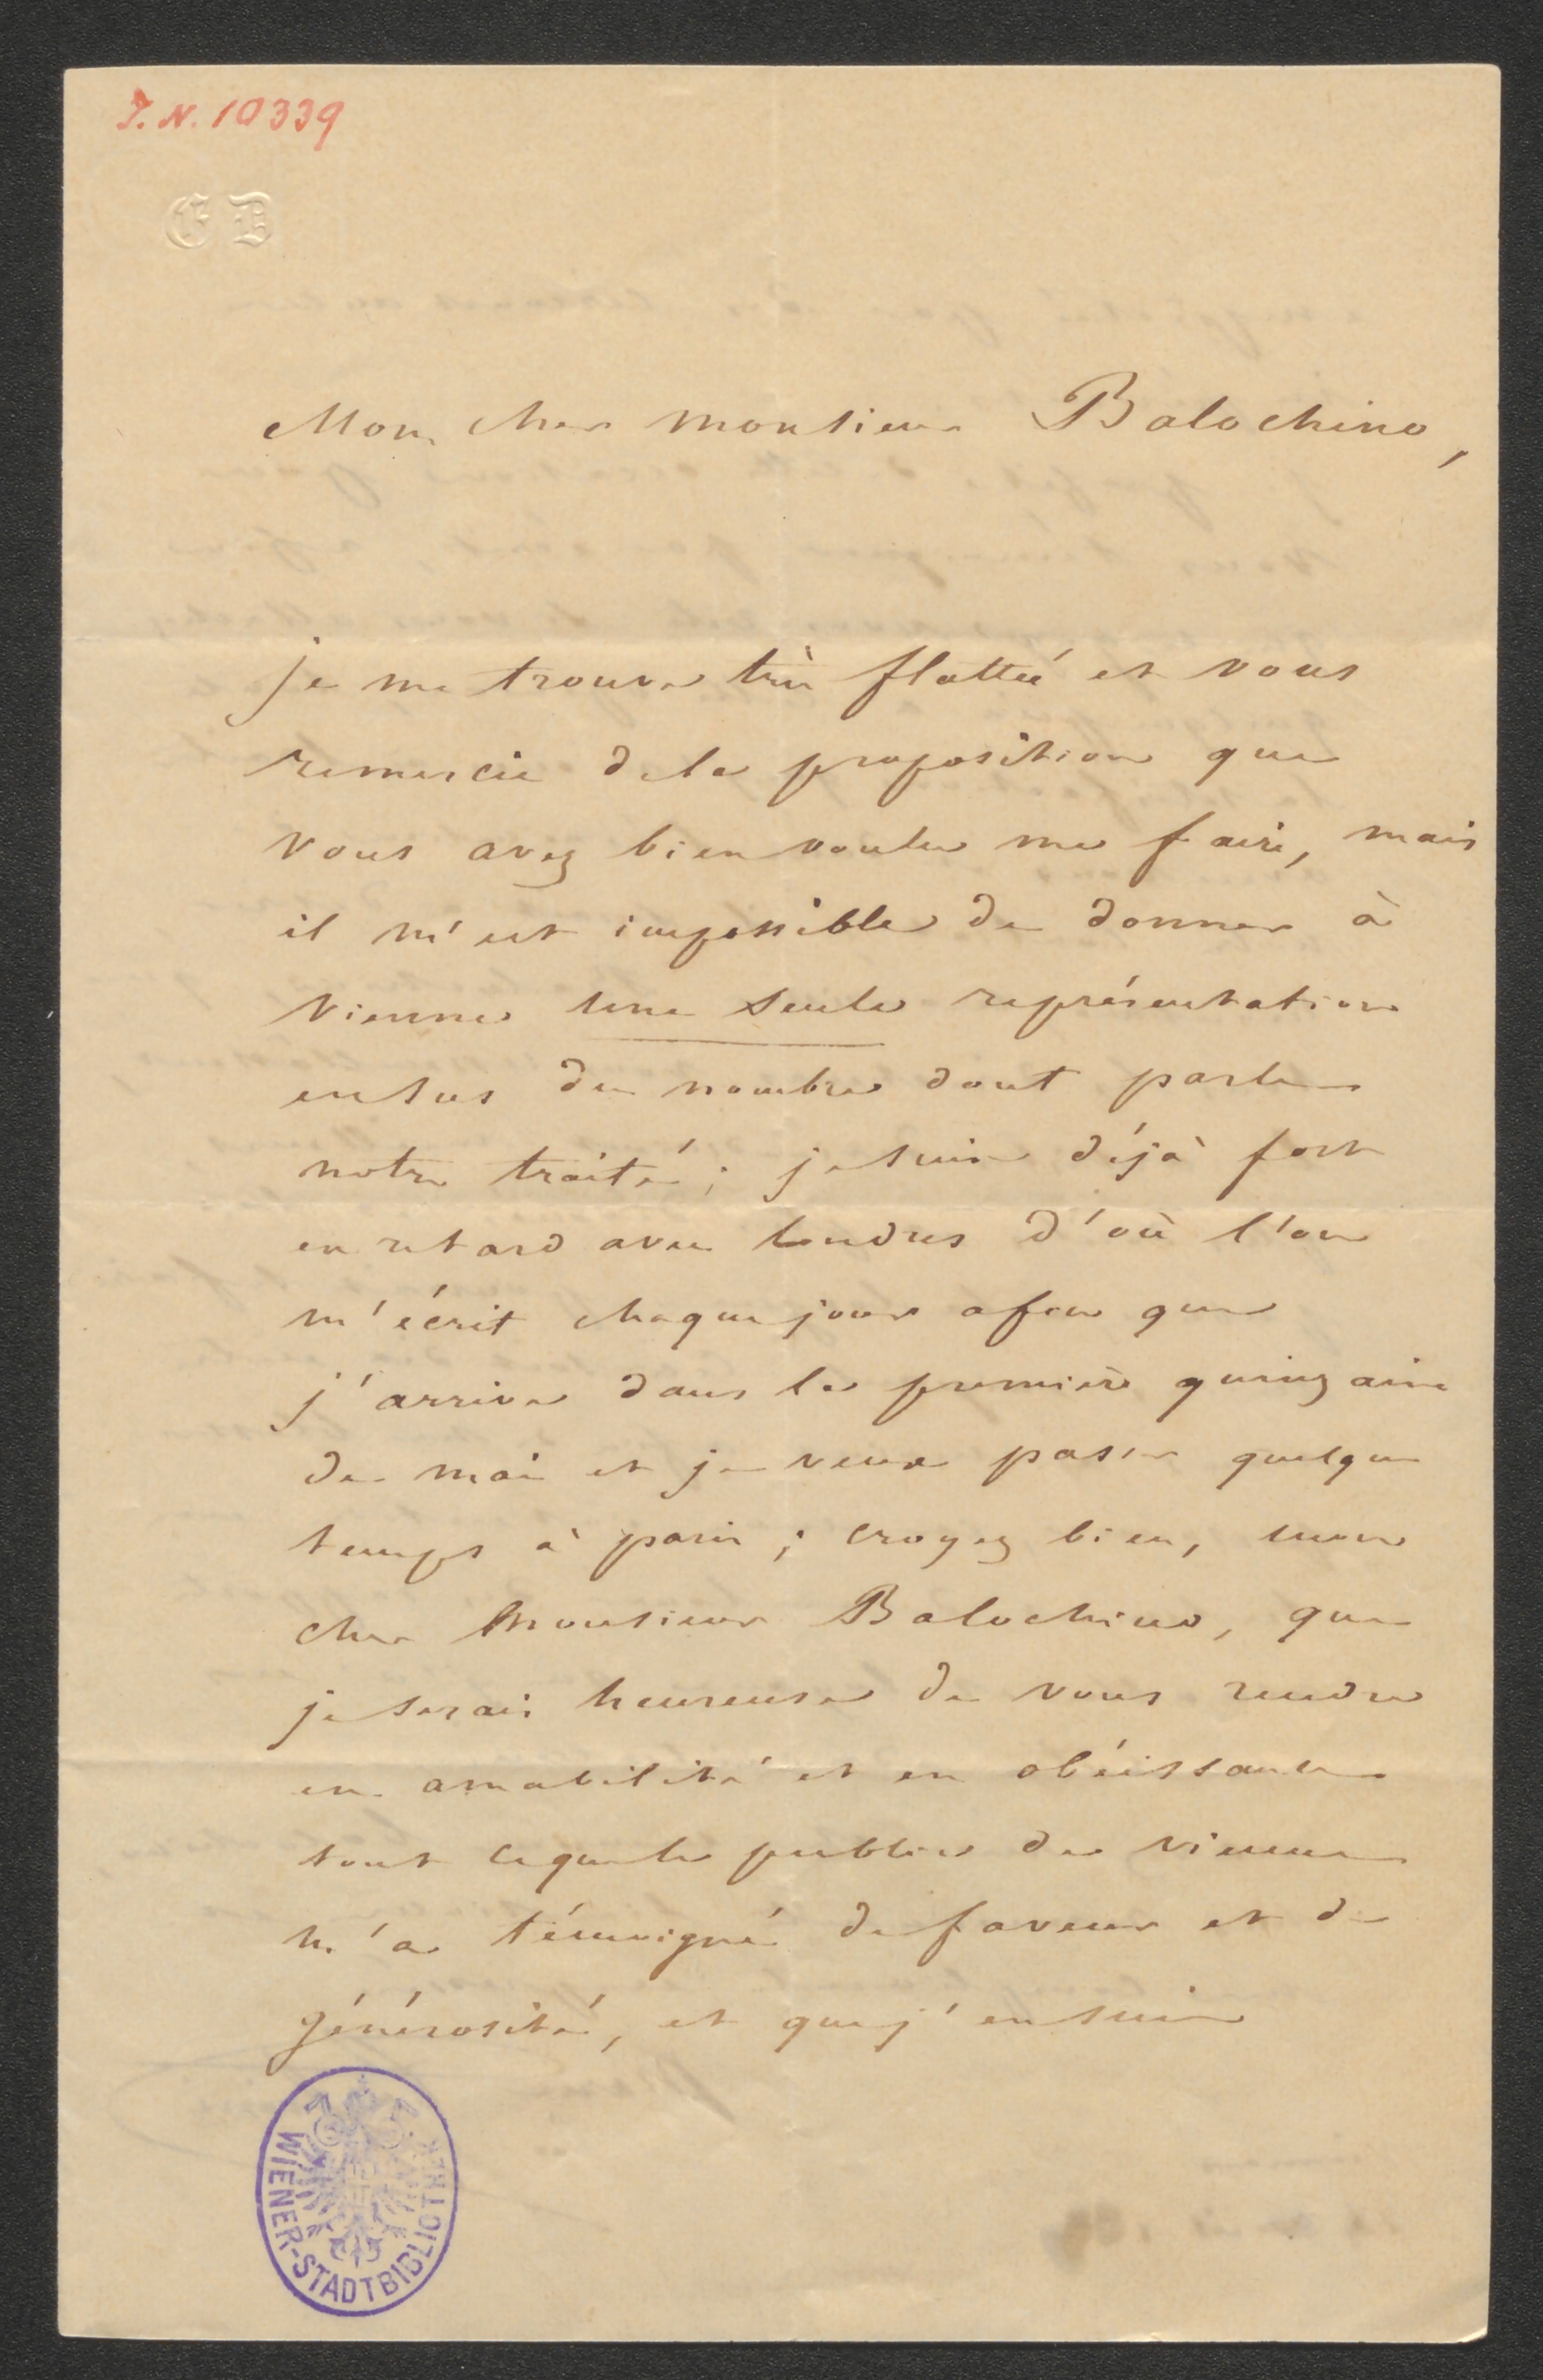 I. N. 10339
E D
Mon cher monsieur Balochino,
je me trouve très flattée et vous
remercie de la proposition que
vous avez bien voulu me faire, mais
il m'est impossible de donner à
vienne une seule représentation
en sus du nombre dont parle
notre traité; je suis déjà fort
en retard avec Londres d'où l'on
m'écrit chaque jour afin que
j'arrive dans la première quinzaine
de mai et je veux passer quelque
temps à paris; croyez bien, mon
cher Monsieur Balochino, que
je serais heureuse de vous rendre
en amabilité et en obéissance
tout ce que le public de vienne
m'a témoigné de faveur et de
générosité, et que j'en suis
WIENER-STADTBIBLIOTHEK